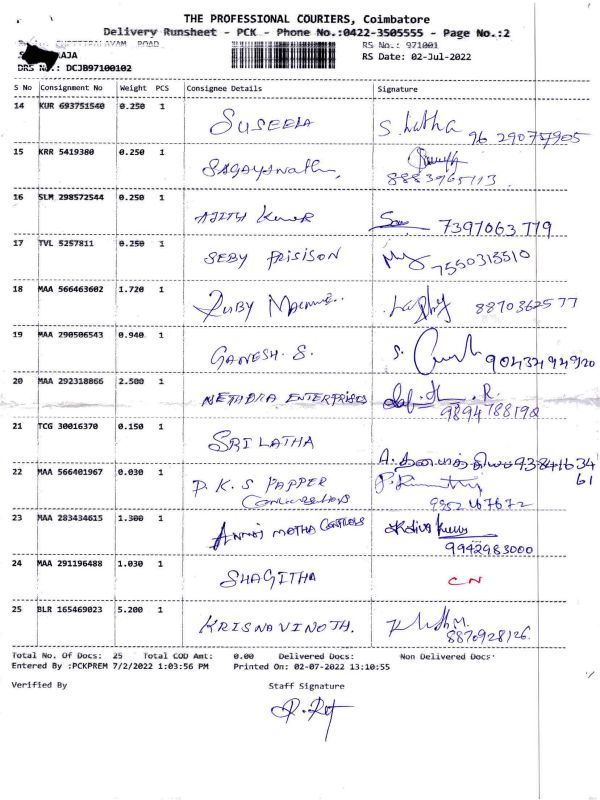 THE PROFESSIONAL COURIERS, Coimbatore
Delivery Runsheet - PCK - Phone No.:0422-3505555 - Page No.:2
ROAD
RS No.: 971001
RAJA
RS Date: 02-Jul-2022
DRS No.: DCJB97100102
S No Consignment No Weight PCS Consignee Details Signature
14 KUR 693751540 0.250 1 SUSEELA S. Latha 96 29075905
15 KRR 5419380 0.250 1 8883965113
16 SLM 298572544 0.250 1 AJITH Kumar 7397063779
17 TVL 5257811 0.250 1 SEBY PRISISON 7550315510
18 MAA 566463602 1.720 1 RUBY 8870362577
19 MAA 290506543 0.940 1 GANESH. S. S.
20 MAA 292318866 2.500 1 ENTERPRISES R.
9894788192
21 TCG 30016370 0.150 1 SRI LATHA A. 9384163461
22 MAA 566401967 0.030 1 P.K.S PAPPER
9952167672
23 MAA 283434615 1.300 1 MOTHA
9942983000
24 MAA 291196488 1.030 1 SHAGITHA CN
25 BLR 165469023 5.200 1 KRISNAVINOTH. M.
8870928126
Total No. Of Docs: 25 Total COD Amt: 0.00 Delivered Docs: Non Delivered Docs:
Entered By :PCKPREM 7/2/2022 1:03:56 PM Printed On: 02-07-2022 13:10:55
Verified By Staff Signature